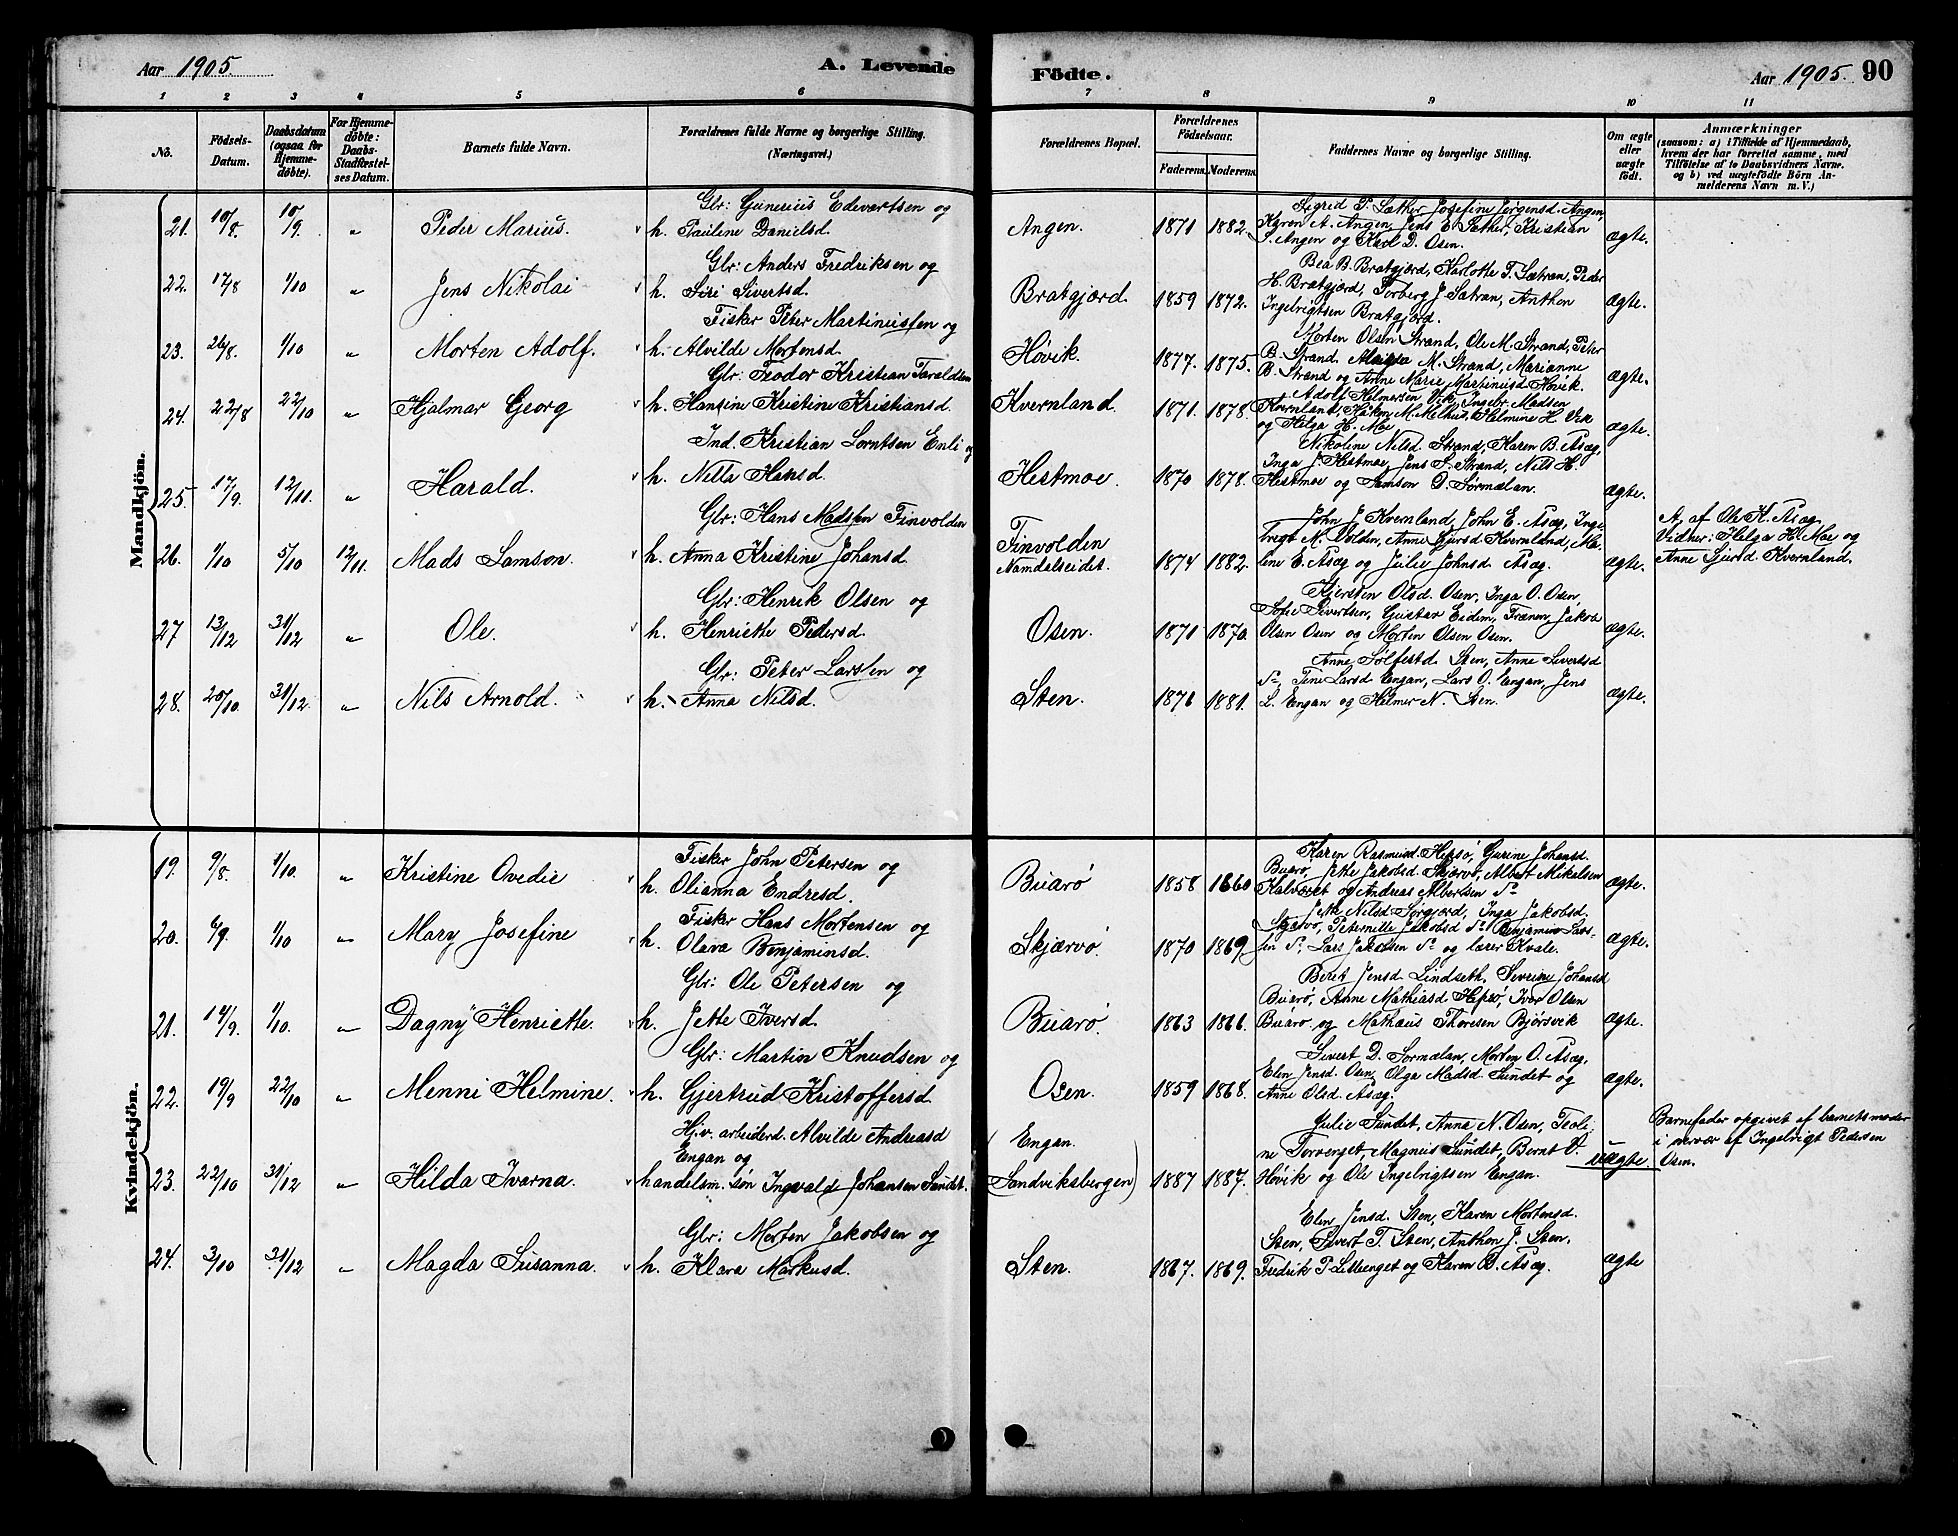 Aar 1905.
A. Levende Födte.
Aar 1905. 90
1 2 3 4 5 6 7 8 9 10 11
No.
Födsels-Datum.
Daabsdatum (ogsaa for Hjemmedöbte).
For Hjemmedöbte: Daabs-Stadfæstelses Datum.
Barnets fulde Navn.
Forældrenes fulde Navne og borgerlige Stilling. (Næringsvei.)
Forældrenes Bopæl.
Forældrenes Födselsaar.
Faderens. Moderens.
Faddernes Navne og borgerlige Stilling.
Om ægte eller uægte födt.
Anmærkninger
(saasom: a) i Tilfælde af Hjemmedaab,
hvem der har forrettet samme, med
Tilföielse af to Daabsvidners Navne.
og b) ved uægtefödte Börn An-
melderens Navn m. V.)
Mandkjön.
Glr: Gunerius Edevartsen og
21. 10/8. 10/9. " Peder Marius. h. Pauline Danielsd. Angen. 1871 1882.
Sigred P. Sæther, Josefine Jørgensd. Angen,
Karen A. Angen, Jens E. Sæther, Kristian
S. Angen og Karl D. Osen. ægte.
Glr: Anders Fredriksen og
22. 17/8 1/10 " Jens Nikolai h. Siri Sivertsd. Bratgjærd. 1859 1872.
Bea B. Bratgjærd, Karlotte T. Sætran, Peder
H. Bratgjærd, Torberg J. Sætran, Anthon
Ingelrigtsen Bratgjærd. ægte.
Fisker Peter Martinussen og
23. 26/8. 1/10 " Morten Adolf. h. Alvilde Mortensd. Hövik. 1877. 1875.
Morten Olsen Strand, Ole M. Strand, Peter
B. Strand, M. Strand, Marianne
B. Strand og Anne Marie Martinusd Hövik. ægte.
Glr: Teodor Kristian Taraldsen
24. 22/8 22/10 " Hjalmar Georg h. Hansine Kristine Kristiansd. Kvernland. 1871. 1878.
Adolf Helmersen Vik, Ingebr. Madsen
Kvernland, Håkon M. Melhus, Helmine H. Vik
og Helga H. Moe ægte.
Ind. Kristian Lorntsen Enli og
25. 17/9. 12/11. " Harald. h. Nilla Hansd. Hestmoe. 1870 1878.
Nikoline Nilsd. Strand, Karen B. Asæg,
Inga J. Hestmoe, Jens S. Strand, Nils H.
Hestmoe og Samson D. Sörmælan. ægte.
Glr: Hans Madsen Finvolden
26. 1/10 5/10 12/11. Mads Samson. h. Anna Kristine Johansd. Finvolden Namdalseidet. 1874 1882.
John J. Kvernland, John E. Asæg, Inge-
bregt M. Volden, Anne Sjursd Kvernland, Ma-
line E. Asæg og Julie Johnsd Asæg. ægte.
A. af Ole K. Asæg
Vidner: Helga H. Moe og
Anne Sjursd Kvernland.
Glr: Henrik Olsen og
27 13/12 31/12 " Ole. h. Henriette Pedersd. Osen. 1871 1870.
Kjersten Olsd. Osen, Inga O. Osen,
Sofie Sivertsen, Gustav Eidem, Frænen, Jakob
Olsen Osen og Morten Olsen Osen. ægte.
Glr: Peter Larssen og
28. 20/10. 31/12. " Nils Arnold. h. Anna Nilsd. Sten. 1876 1881.
Anne Sølfestd. Sten, Anne Sivertsd
So, Tine Larsd Engan, Lars O. Engan, Jens
L. Engan og Helmer N. Sten. ægte.
Kvindekjön.
Fisker John Petersen og
19. 9/8. 1/10. " Kristine Ovedie h. Olianna Endresd. Buarö 1858 1860
Karen Rasmusd. Hepsö, Gurine Johansd.
Buarö, Jette Jakobsd. Skjærvö, Albert Mikalsen
Kalværet og Andreas Albertsen So ægte.
Fisker Hans Mortensen og
20. 6/9. 1/10 " Mary Josefine h. Olava Benjaminsd. Skjærvö. 1870 1869
Jette Nilsd Sörgjærd, Inga Jakobsd.
Skjærvö, Peternille Jakobsd So Benjamin Lars-
sen So Lars Jakobsen So og lærer Kvale. ægte.
Glr: Ole Petersen og
21. 14/9. 1/10. " Dagny Henriette. h. Jette Iversd. Buarö. 1863 1866.
Beret Jensd. Lindseth, Severine Johansd
Buarö, Anne Mathiasd Hepsö, Iver Olsen
Buarö og Mathæus Thoresen Bjørsvik ægte.
Glr: Martin Knudsen og
22. 19/9 22/10 " Menni Helmine. h. Gjertrud Kristoffersd. Osen. 1859 1868.
Sivert D. Sörmælan, Morten O. Asæg,
Elen Jensd. Osen, Olga Madsd Sundet og
Anne Olsd. Asæg. ægte.
Hjv. arbeiderd. Alvilde Andreasd
Engan og
23. 22/10 31/12 " Hilda Ivarna. handelsm. søn Ingvald Johansen Sundet. (Engan. Sandviksbergen) 1887 1887.
Julie Sundet, Anna N. Osen, Teoli-
ne Torverget, Magnus Sundet, Bernt O.
Hövik og Ole Ingelrigtsen Engan. uægte.
Barnefader opgivet af barnets moder
i nærvær af Ingelrigt Pedersen
Osen.
Glr: Morten Jakobsen og
24. 3/10 31/12 " Magda Susanna. h. Klara Markusd. Sten. 1867. 1869.
Elen Jensd. Sten, Karen Mortensd.
Sten, Sivert T. Sten, Anthon J. Sten,
Fredrik P. og Karen B. Asæg. ægte